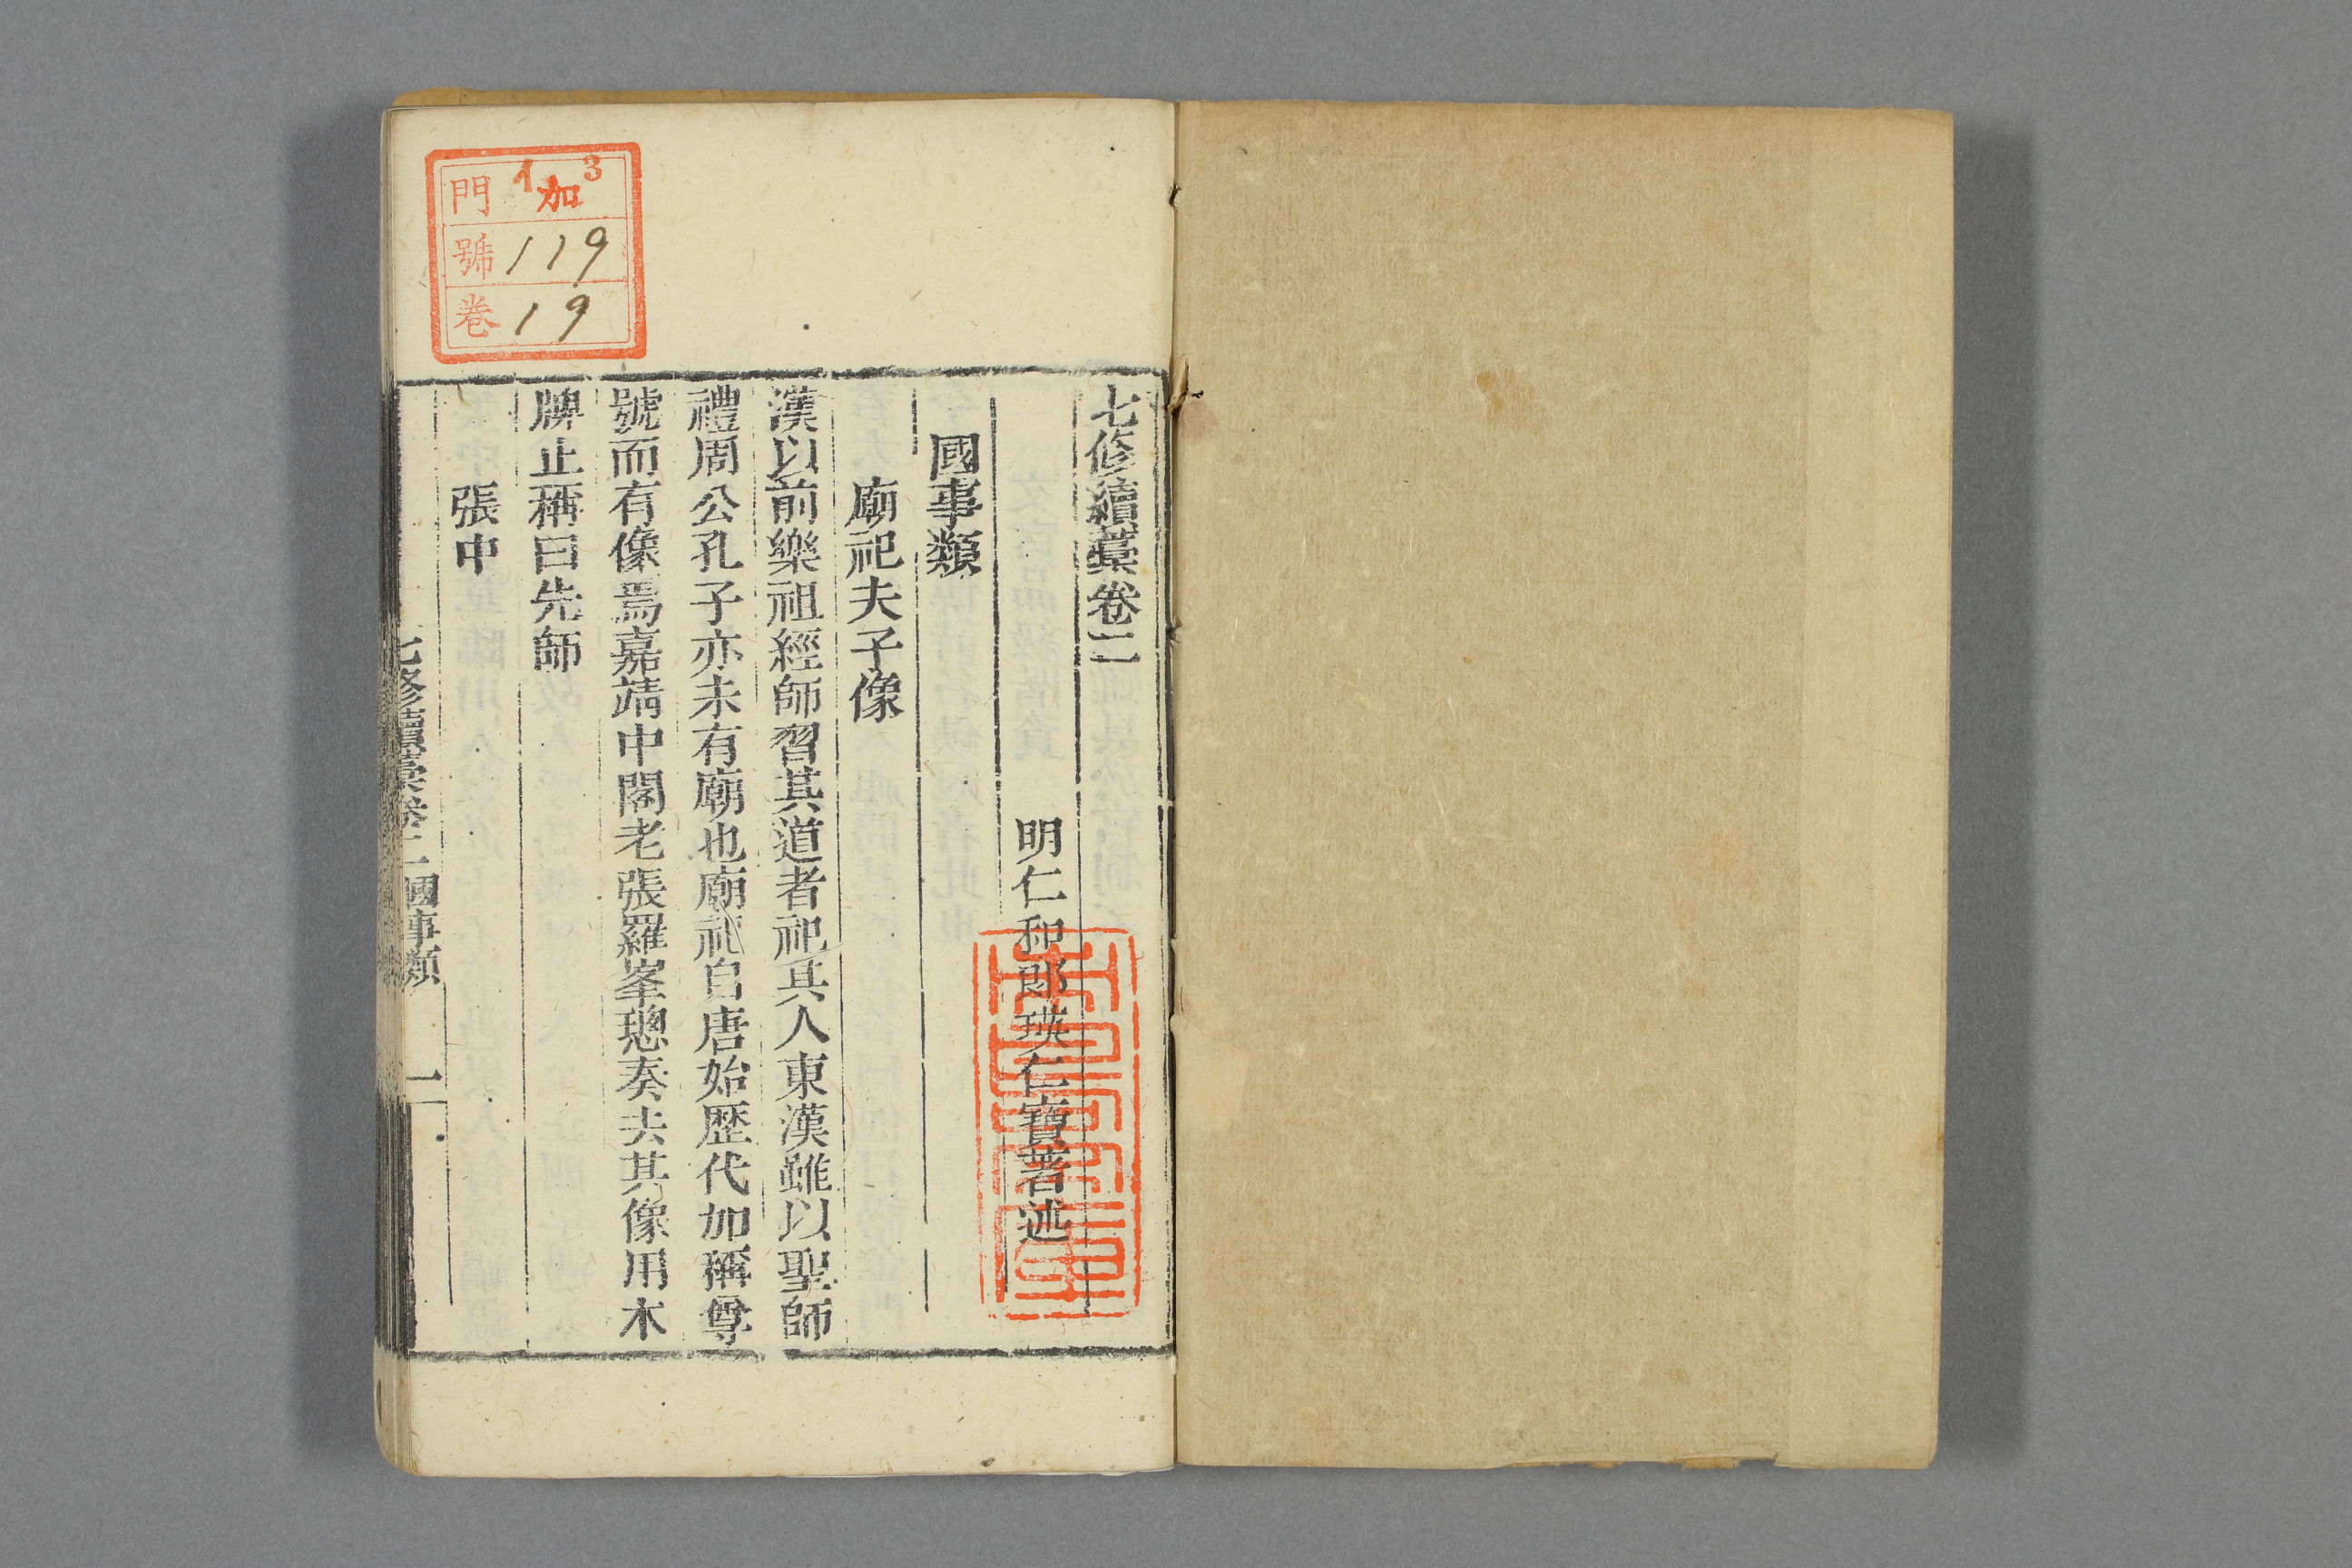 七修續藁卷二
明仁和郎瑛仁寶著述
國事類
廟祀夫子像
漢以前樂祖經師習其道者祀其人東漢雖以聖師
禮周公孔子亦未有廟也廟祀自唐始歷代加稱尊
號而有像焉嘉靖中閣老張羅峯璁奏去其像用木
牌止稱曰先師
張中
七修續藁卷二 國事類 一
門 1加3
號 119
卷 19